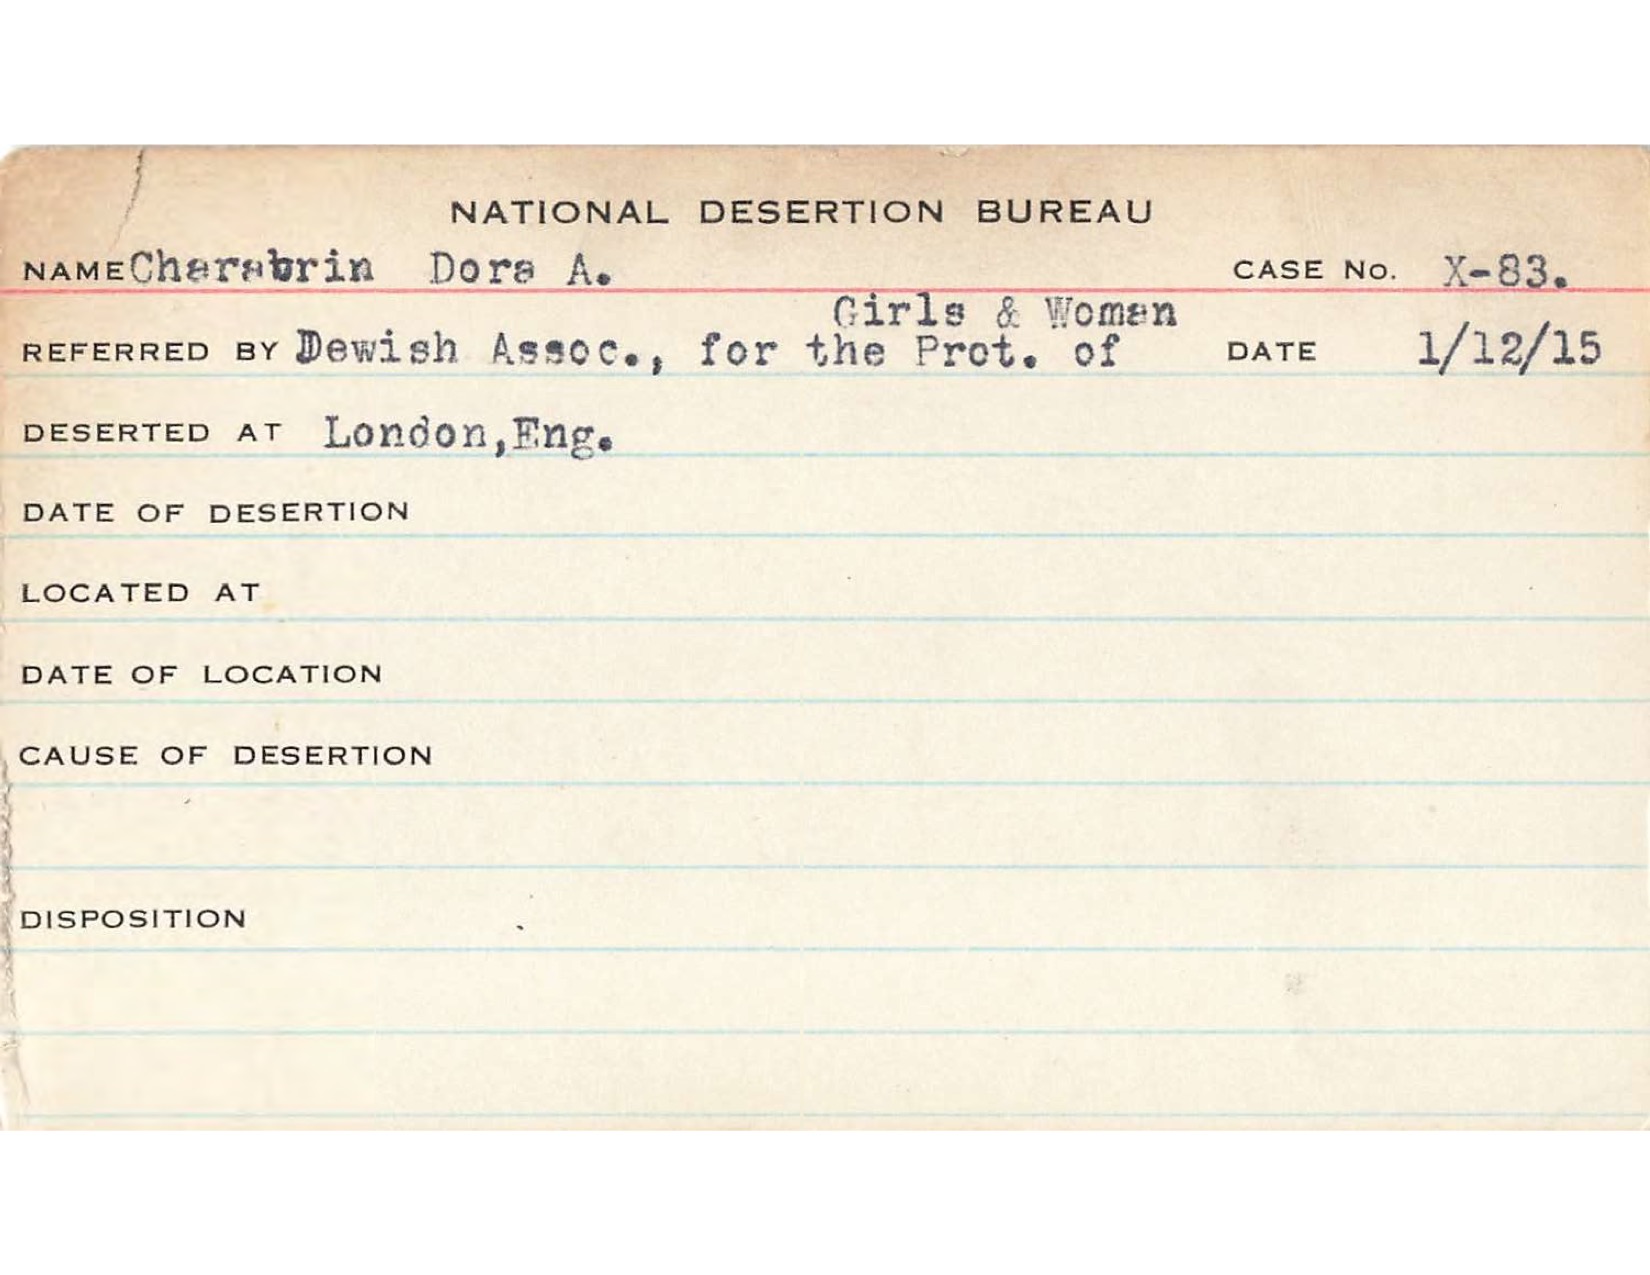 NATIONAL DESERTION BUREAU
NAME Charabrin Dora A. CASE No. X-83.
Girls & Woman
REFERRED BY Dewish Assoc., for the Prot. of DATE 1/12/15
DESERTED AT London,Eng.
DATE OF DESERTION
LOCATED AT
DATE OF LOCATION
CAUSE OF DESERTION
DISPOSITION